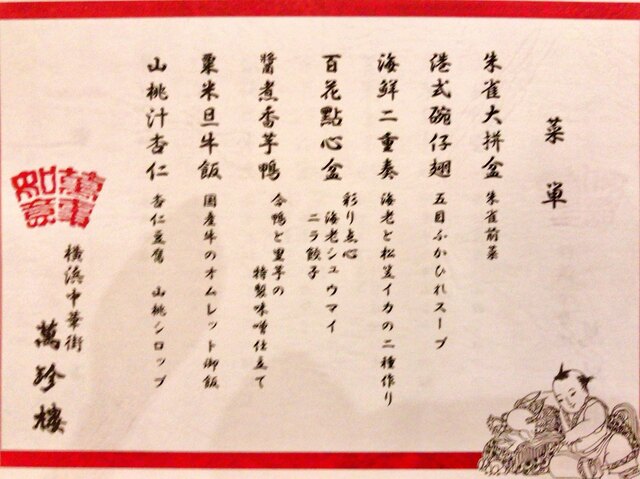 菜單
朱雀大拼盆 朱雀前菜
港式碗仔翅 五目ふかひれスープ
海鮮二重奏 海老と松笠イカの二種作り
百花點心盆 彩り点心
海老シュウマイ
ニラ餃子
醬煮香芋鴨 合鴨と里芋の
特製味噌仕立て
粟米旦牛飯 国産牛のオムレット御飯
山桃汁杏仁 杏仁豆腐 山桃シロップ
萬事如意
横浜中華街
萬珍樓